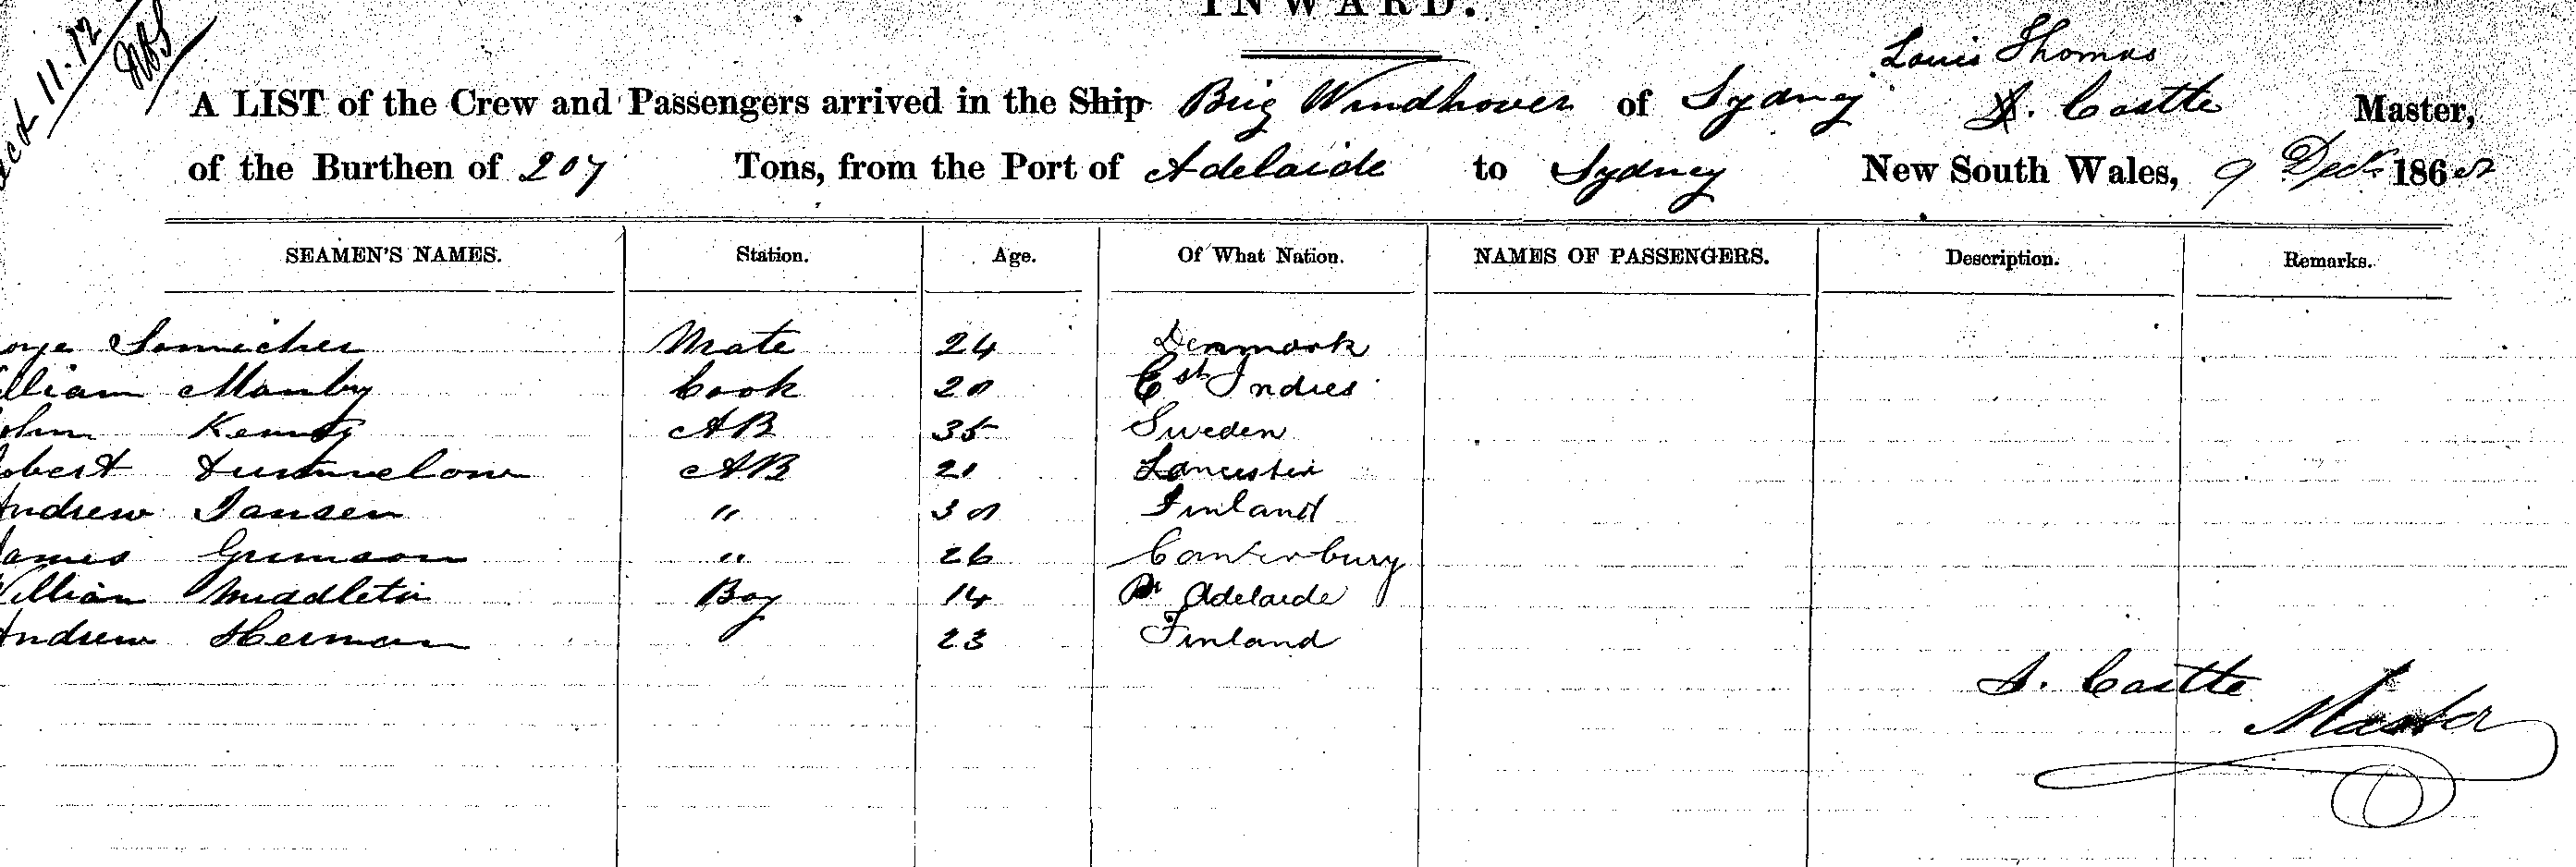 INWARD.
11.12
Louis Thomas
A LIST of the Crew and Passengers arrived in the Ship Brig Windhover of Sydney. Castle Master,
of the Burthen of 207 Tons, from the Port of Adelaide to Sydney New South Wales, 9 Decr 186
SEAMEN'S NAMES. Station. Age. Of What Nation. NAMES OF PASSENGERS. Description. Remarks.
Mate 24 Denmark
lliam Manby Cook 20 Est Indies
ohn Kenny AB 35 Sweden
obert AB 21 Lancaster
Andrew Jansen " 30 Finland
James Grimson " 26 Canterbury
William Middleton Boy 14 Pt Adelaide
Andrew Herman 23 Finland
Castle
Master